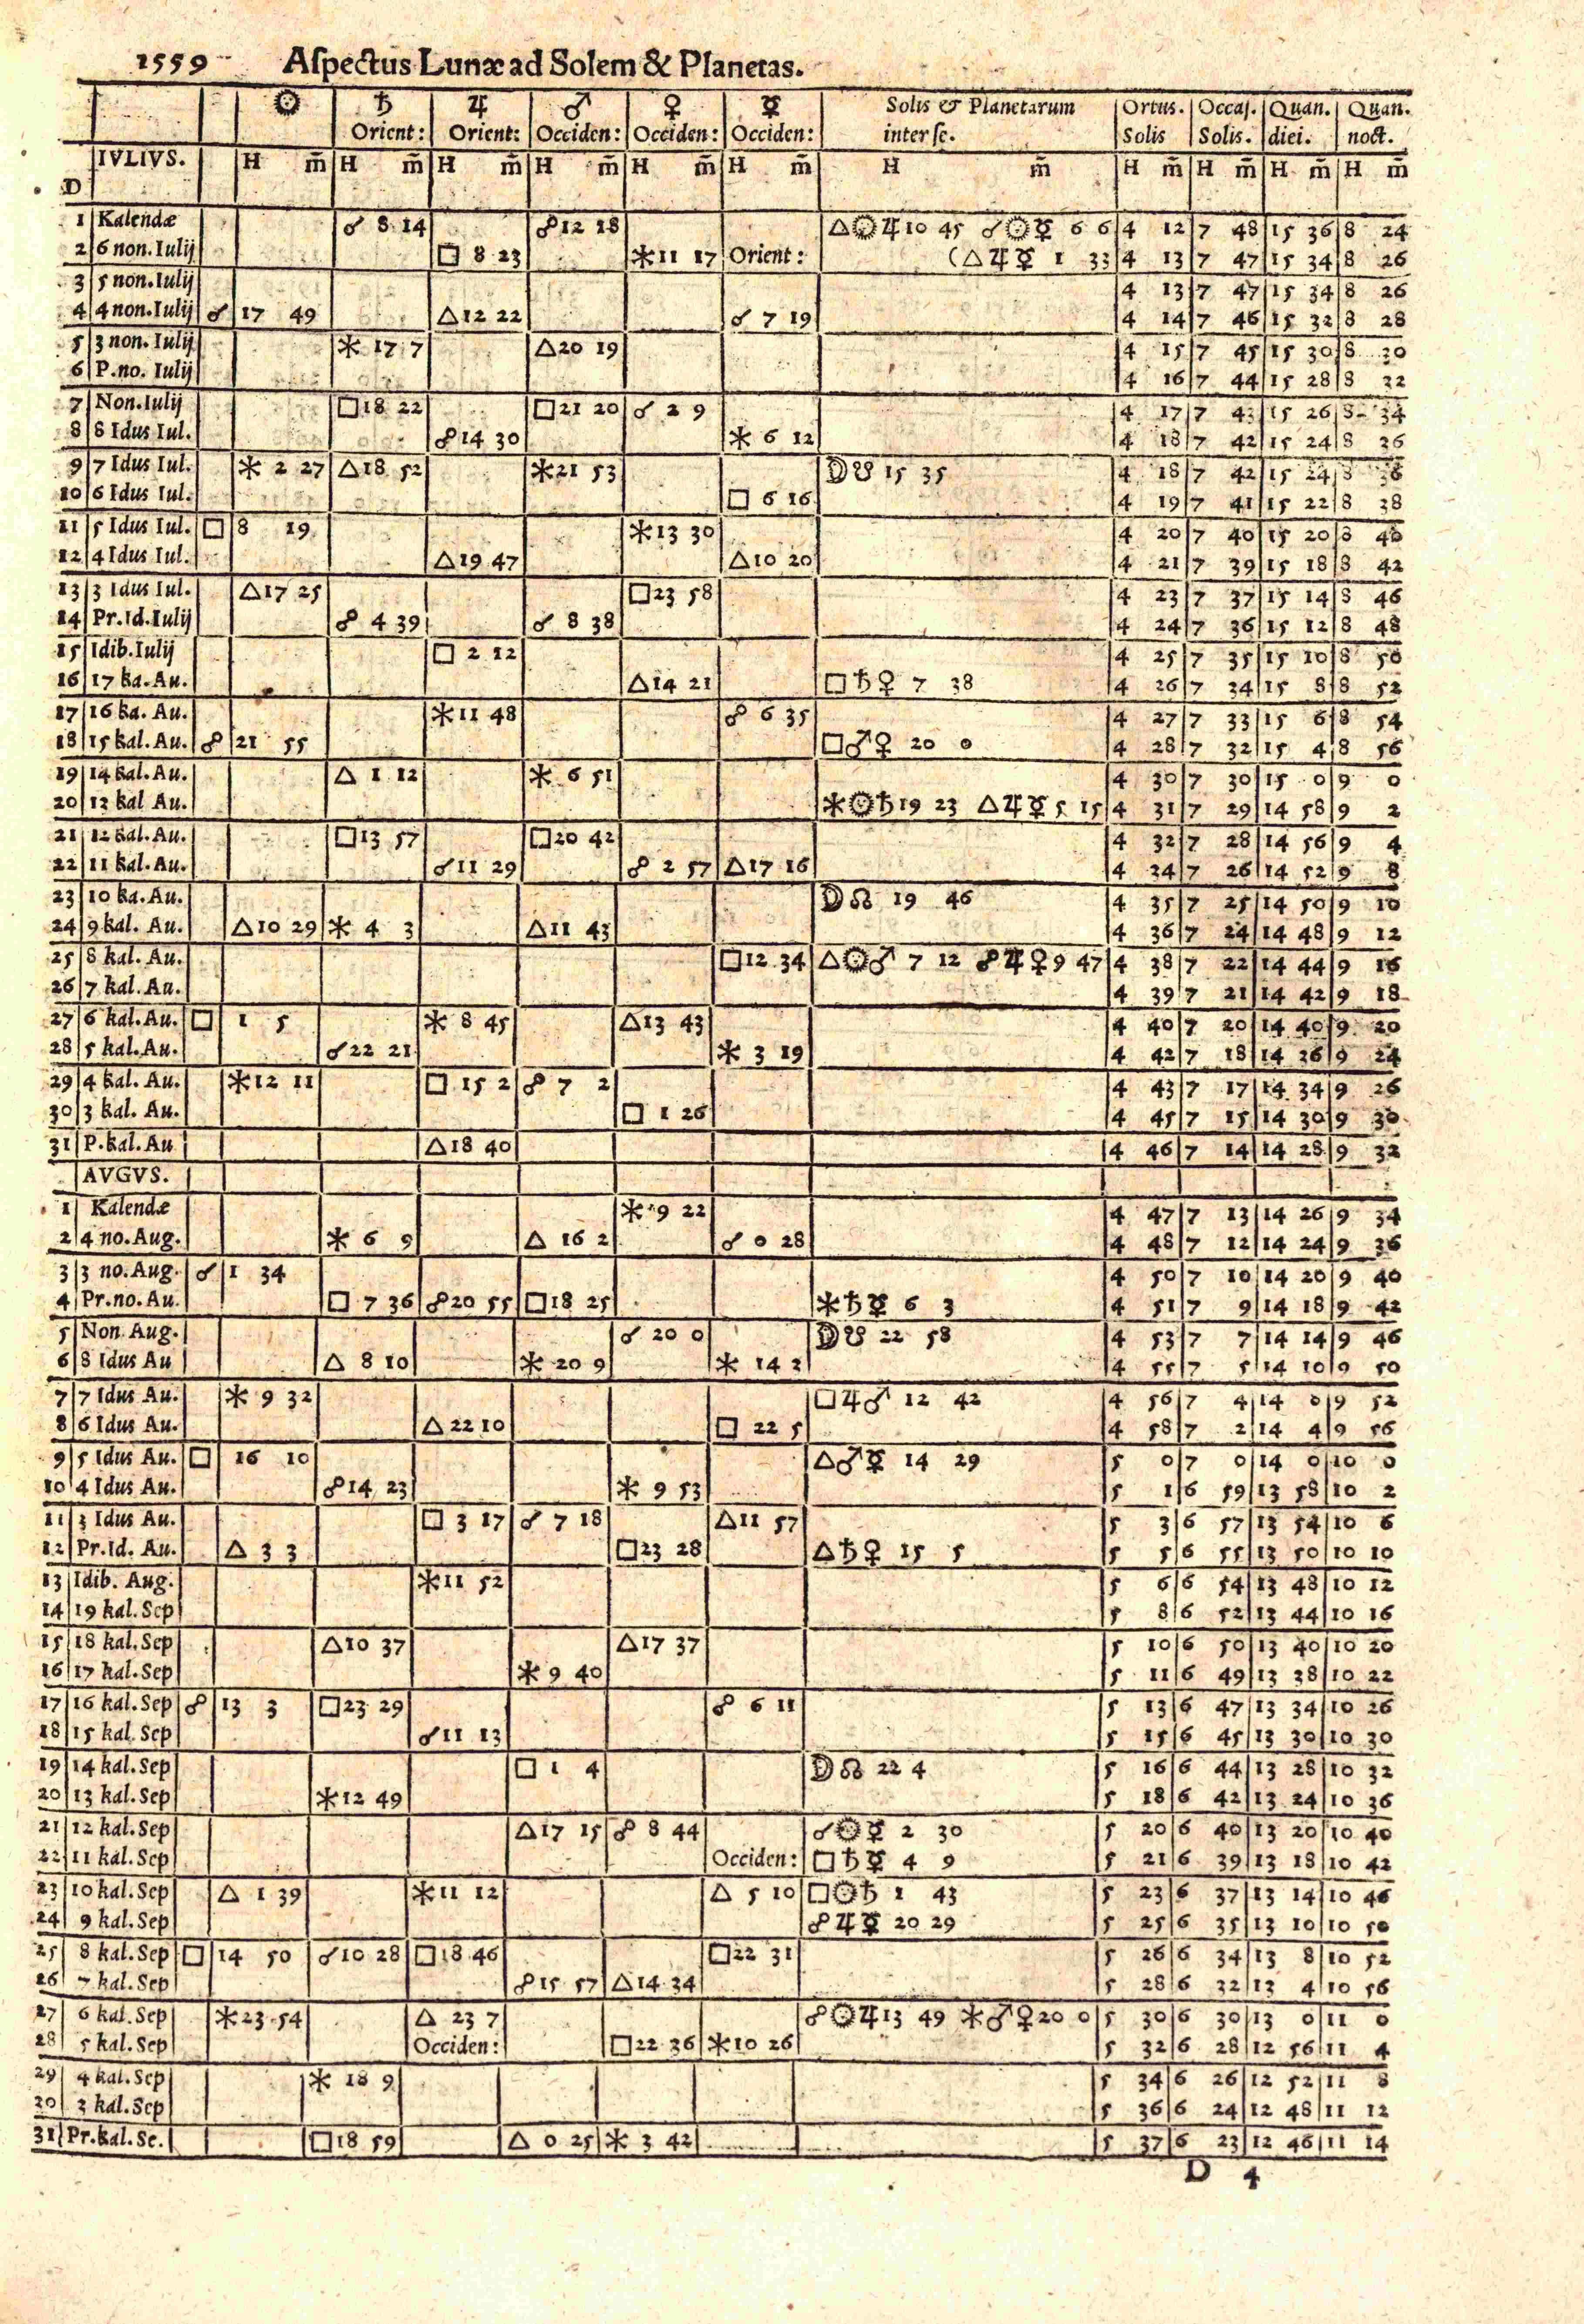 1559 Aſpectus Lunæ ad Solem & Planetas.
☉ ♄ ♃ ♂ ♀ ☿ Solis & Planetarum Ortus. Occaſ. Quan. Quan.
Orient: Orient: Occiden: Occiden: Occiden: inter ſe. Solis Solis. diei. noct.
IVLIVS. H m̃ H m̃ H m̃ H m̃ H m̃ H m̃ H m̃ H m̃ H m̃ H m̃ H m̃
D
1 Kalendæ ☌ 8 14 ☍ 12 18 △☉♃ 10 45 ☌☉☿ 6 6 4 12 7 48 15 36 8 24
2 6 non. Iulij □ 8 23 ⚹ 11 17 Orient: (△♃☿ 1 33 4 13 7 47 15 34 8 26
3 5 non. Iulij 4 13 7 47 15 34 8 26
4 4 non. Iulij ☌ 17 49 △ 12 22 ☌ 7 19 4 14 7 46 15 32 8 28
5 3 non. Iulij ⚹ 17 7 △ 20 19 4 15 7 45 15 30 8 30
6 P. no. Iulij 4 16 7 44 15 28 8 32
7 Non. Iulij □ 18 22 □ 21 20 ☌ 2 9 4 17 7 43 15 26 8 34
8 8 Idus Iul. ☍ 14 30 ⚹ 6 12 4 18 7 42 15 24 8 36
9 7 Idus Iul. ⚹ 2 27 △ 18 52 ⚹ 21 53 ☽☋ 15 35 4 18 7 42 15 24 8 36
10 6 Idus Iul. □ 6 16 4 19 7 41 15 22 8 38
11 5 Idus Iul. □ 8 19 ⚹ 13 30 4 20 7 40 15 20 8 40
12 4 Idus Iul. △ 19 47 △ 10 20 4 21 7 39 15 18 8 42
13 3 Idus Iul. △ 17 25 □ 23 58 4 23 7 37 15 14 8 46
14 Pr. Id. Iulij ☍ 4 39 ☌ 8 38 4 24 7 36 15 12 8 48
15 Idib. Iulij □ 2 12 4 25 7 35 15 10 8 50
16 17 ka. Au. △ 14 21 □♄♀ 7 38 4 26 7 34 15 8 8 52
17 16 ka. Au. ⚹ 11 48 ☍ 6 35 4 27 7 33 15 6 8 54
18 15 kal. Au. ☍ 21 55 □♂♀ 20 0 4 28 7 32 15 4 8 56
19 14 kal. Au. △ 1 12 ⚹ 6 51 4 30 7 30 15 0 9 0
20 12 kal Au. ⚹☉♄ 19 23 △♃☿ 5 15 4 31 7 29 14 58 9 2
21 12 kal. Au. □ 13 57 □ 20 42 4 32 7 28 14 56 9 4
22 11 kal. Au. ☌ 11 29 ☍ 2 57 △ 17 16 4 34 7 26 14 52 9 8
23 10 ka. Au. ☽☊ 19 46 4 35 7 25 14 50 9 10
24 9 kal. Au. △ 10 29 ⚹ 4 3 △ 11 43 4 36 7 24 14 48 9 12
25 8 kal. Au. □ 12 34 △☉♂ 7 12 ☍♃♀ 9 47 4 38 7 22 14 44 9 16
26 7 kal. Au. 4 39 7 21 14 42 9 18
27 6 kal. Au. □ 1 5 ⚹ 8 45 △ 13 43 4 40 7 20 14 40 9 20
28 5 kal. Au. ☌ 22 21 ⚹ 3 19 4 42 7 18 14 36 9 24
29 4 kal. Au. ⚹ 12 11 □ 15 2 ☍ 7 2 4 43 7 17 14 34 9 26
30 3 kal. Au. □ 1 26 4 45 7 15 14 30 9 30
31 P. kal. Au △ 18 40 4 46 7 14 14 28 9 32
AVGVS.
1 Kalendæ ⚹ 9 22 4 47 7 13 14 26 9 34
2 4 no. Aug. ⚹ 6 9 △ 16 2 ☌ 0 28 4 48 7 12 14 24 9 36
3 3 no. Aug. ☌ 1 34 4 50 7 10 14 20 9 40
4 Pr. no. Au. □ 7 36 ☍ 20 55 □ 18 25 ⚹♄☿ 6 3 4 51 7 9 14 18 9 42
5 Non. Aug. ☌ 20 0 ☽☋ 22 58 4 53 7 7 14 14 9 46
6 8 Idus Au △ 8 10 ⚹ 20 9 ⚹ 14 2 4 55 7 5 14 10 9 50
7 7 Idus Au. ⚹ 9 32 □♃♂ 12 42 4 56 7 4 14 9 52
8 6 Idus Au. △ 22 10 □ 22 5 4 58 7 2 14 4 9 56
9 5 Idus Au. □ 16 10 △♂☿ 14 29 5 0 7 0 14 0 10 0
10 4 Idus Au. ☍ 14 23 ⚹ 9 53 5 1 6 59 13 58 10 2
11 3 Idus Au. □ 3 17 ☌ 7 18 △ 11 57 5 3 6 57 13 54 10 6
12 Pr. Id. Au. △ 3 3 □ 23 28 △♄♀ 15 5 5 5 6 55 13 50 10 10
13 Idib. Aug. ⚹ 11 52 5 6 6 54 13 48 10 12
14 19 kal. Sep 5 8 6 52 13 44 10 16
15 18 kal. Sep △ 10 37 △ 17 37 5 10 6 50 13 40 10 20
16 17 kal. Sep ⚹ 9 40 5 11 6 49 13 38 10 22
17 16 kal. Sep ☍ 13 3 □ 23 29 ☍ 6 11 5 13 6 47 13 34 10 26
18 15 kal. Sep ☌ 11 13 5 15 6 45 13 30 10 30
19 14 kal. Sep □ 1 4 ☽☊ 22 4 5 16 6 44 13 28 10 32
20 13 kal. Sep ⚹ 12 49 5 18 6 42 13 24 10 36
21 12 kal. Sep △ 17 15 ☍ 8 44 ☌☉☿ 2 30 5 20 6 40 13 20 10 40
22 11 kal. Sep Occiden: □♄☿ 4 9 5 21 6 39 13 18 10 42
23 10 kal. Sep △ 1 39 ⚹ 11 12 △ 5 10 □☉♄ 1 43 5 23 6 37 13 14 10 46
24 9 kal. Sep ☍♃☿ 20 29 5 25 6 35 13 10 10 50
25 8 kal. Sep □ 14 50 ☌ 10 28 □ 18 46 □ 22 31 5 26 6 34 13 8 10 52
26 7 kal. Sep ☍ 15 57 △ 14 34 5 28 6 32 13 4 10 56
27 6 kal. Sep ⚹ 23 54 △ 23 7 ☍☉♃ 13 49 ⚹♂♀ 20 0 5 30 6 30 13 0 11 0
28 5 kal. Sep Occiden: □ 22 36 ⚹ 10 26 5 32 6 28 12 56 11 4
29 4 kal. Sep ⚹ 18 9 5 34 6 26 12 52 11 8
30 3 kal. Sep 5 36 6 24 12 48 11 12
31 Pr. kal. Se. □ 18 59 △ 0 25 ⚹ 3 42 5 37 6 23 12 46 11 14
D 4